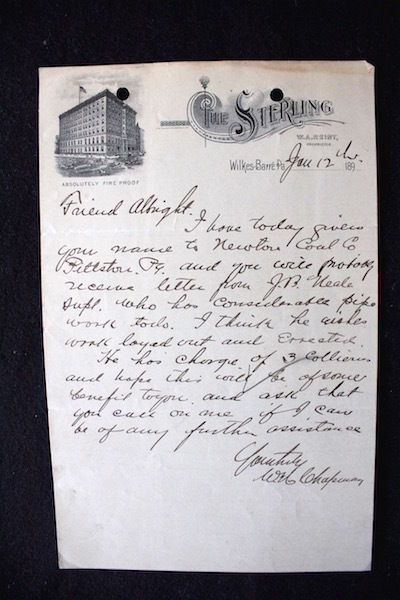 THE STERLING
W.A. REIST,
PROPRIETOR.
ABSOLUTELY FIRE PROOF
Wilkes-Barré, Pa. Jan 12th 189
Friend Albright.
I have today given
your name to Newton Coal Co
Pittston. Pa. and you will probably
receive letter from J.B. Neale
Supt. who has considerable pipe
work todo. I think he wishes
work layed out and Errected.
He has Charge of 3 Collierys
and hope this will be of some
benefit to you. and ask that
you call on me if I can
be of any further assistance
Yours truly
Chapman